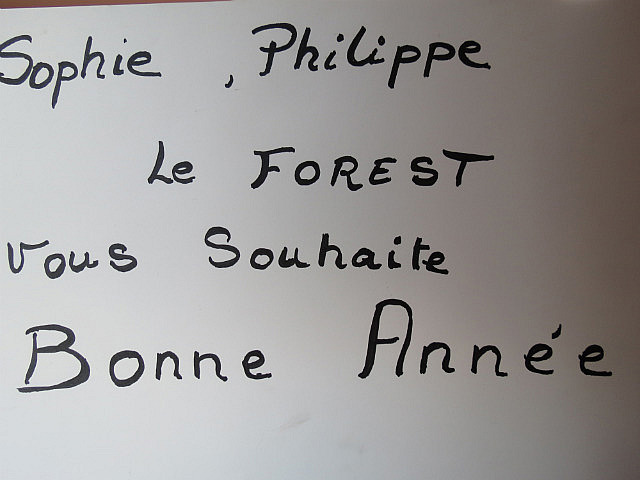 Sophie , Philippe
Le FOREST
Vous Souhaite
Bonne Année